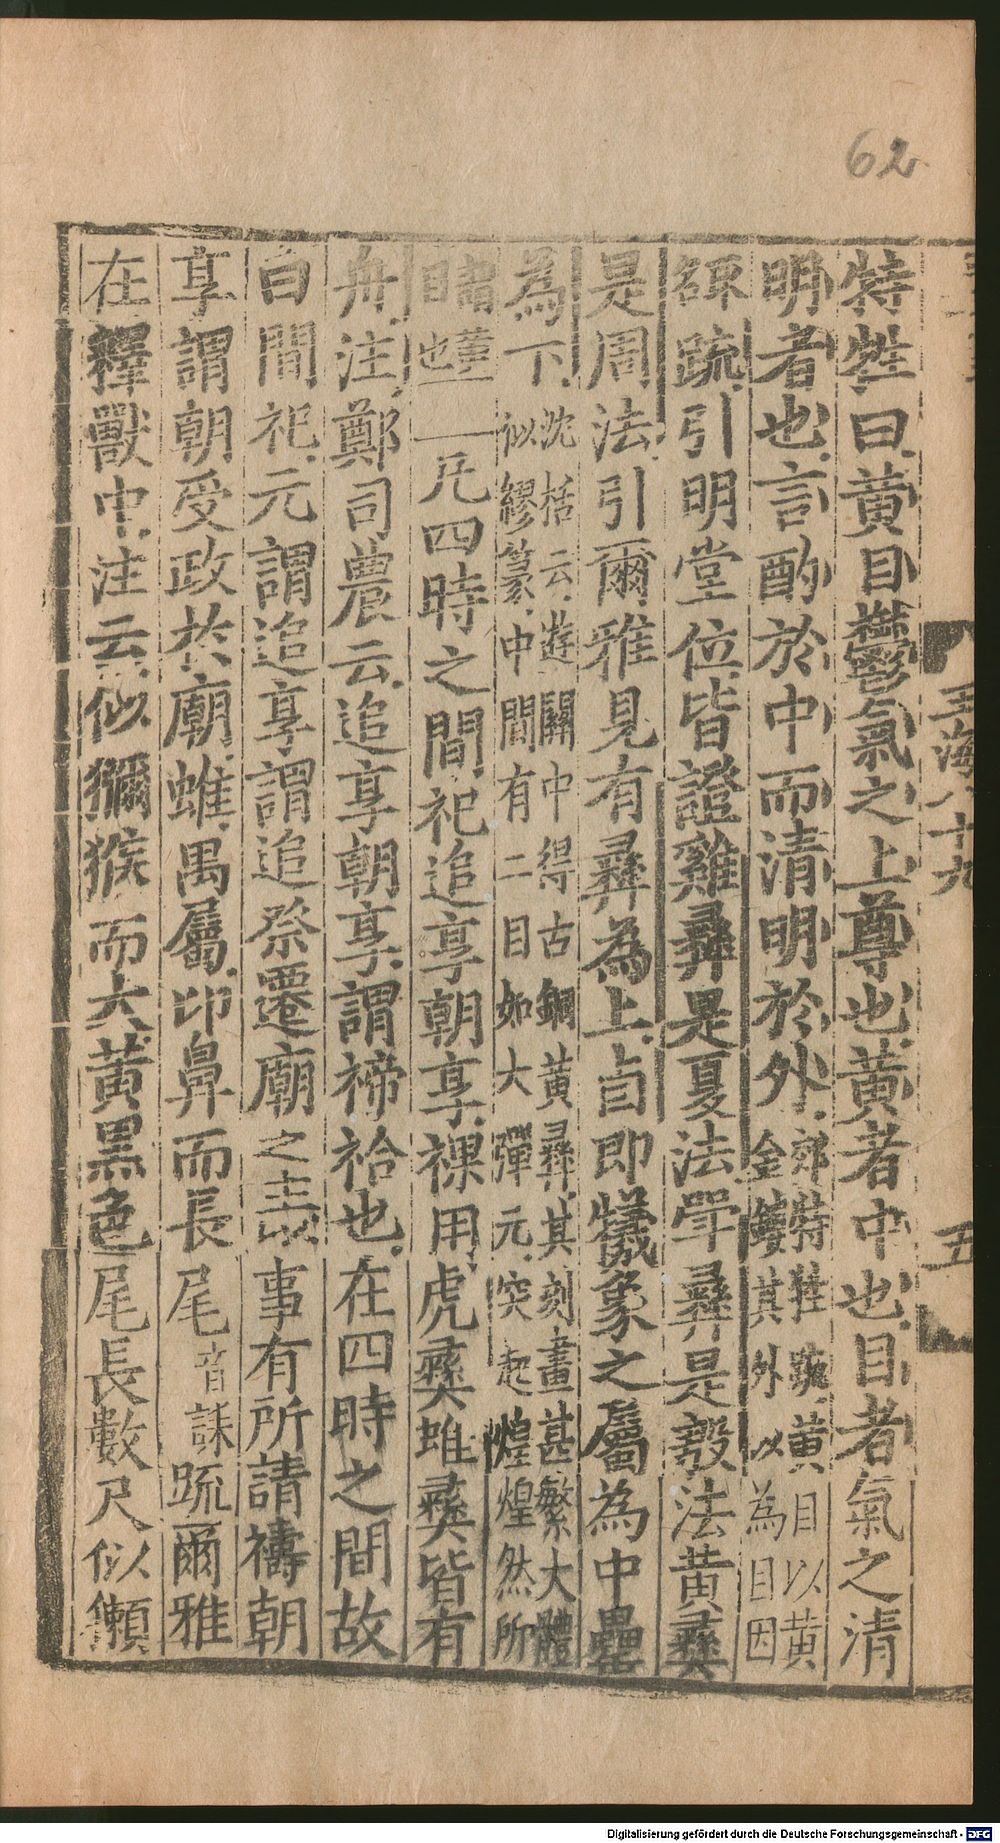 62
特牲曰黃目鬱氣之上尊也黃者中也目者氣之清
明者也言酌於中而清明於外郊特牲疏黃目以黃金鏤其外以為目因
疏引明堂位皆證雞彝是夏法斝彝是殷法黃彝
是周法引爾雅見有彝為上卣即犧象之屬為中罍
為下沈括云遊關中得古銅黃彝其刻畫甚繁大體似繆篆中間有二目如大彈元突起煌煌然所
也凡四時之間祀追享朝享祼用虎彝蜼彝皆有
舟注鄭司農云追享朝享謂禘祫也在四時之間故
曰間祀元謂追享謂追祭遷廟之主以事有所請禱朝
享謂朝受政於廟蜼禺屬卬鼻而長尾音誄疏爾雅
在釋獸中注云似獼猴而大黃黑色尾長數尺似獺
玉海八十九
五
Digitalisierung gefördert durch die Deutsche Forschungsgemeinschaft - DFG